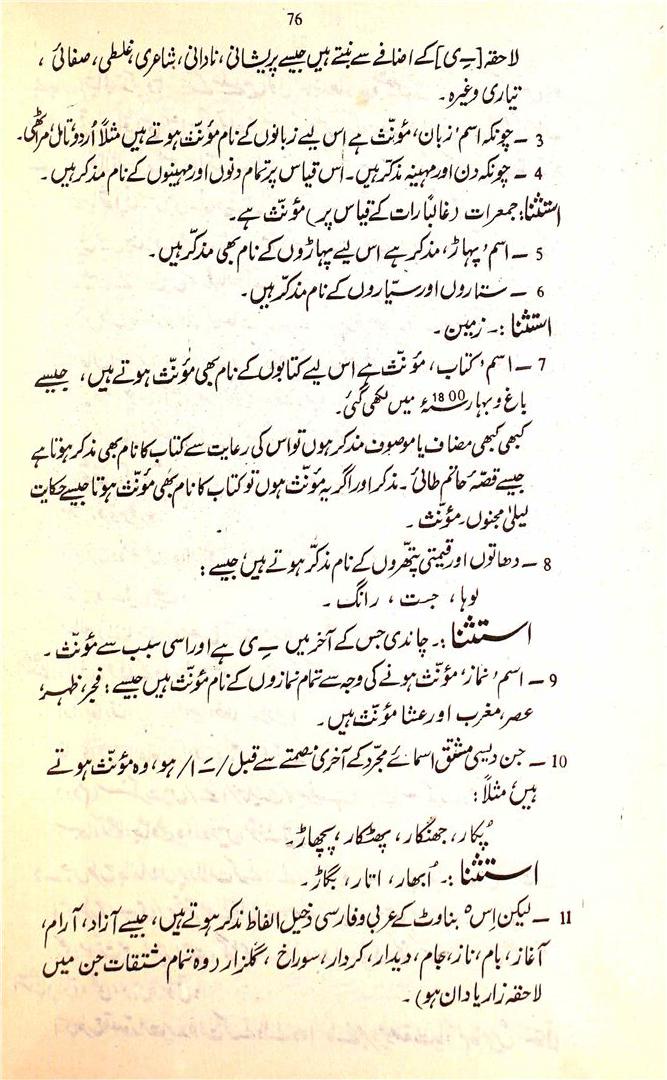 76
لاحقہ [ ـِ ی ] کے اضافے سے بنتے ہیں جیسے پریشانی، نادانی، شاعری، غلطی، صفائی،
تیاری وغیرہ۔
3 ۔ چونکہ اسم ’زبان‘ مؤنث ہے اس لیے زبانوں کے نام مؤنث ہوتے ہیں مثلاً اُردو، تامل، مراٹھی۔
4 ۔ چونکہ دن اور مہینہ مذکر ہیں۔ اس قیاس پر تمام دنوں اور مہینوں کے نام مذکر ہیں۔
استثنا: جمعرات (غالباً رات کے قیاس پر) مؤنث ہے۔
5 ۔ اسم ’پہاڑ‘ مذکر ہے اس لیے پہاڑوں کے نام بھی مذکر ہیں۔
6 ۔ ستاروں اور سیّاروں کے نام مذکر ہیں۔
استثنا :۔ زمین۔
7 ۔ اسم ’کتاب‘ مؤنث ہے اس لیے کتابوں کے نام بھی مؤنث ہوتے ہیں، جیسے
باغ و بہار 1800ء میں لکھی گئی۔
کبھی کبھی مضاف یا موصوف مذکر ہوں تو اس کی رعایت سے کتاب کا نام بھی مذکر ہوتا ہے
جیسے قصّۂ حاتم طائی۔ مذکر اور اگر یہ مؤنث ہوں تو کتاب کا نام بھی مؤنث ہوتا جیسے حکایت
لیلیٰ مجنوں۔ مؤنث۔
8 ۔ دھاتوں اور قیمتی پتھروں کے نام مذکر ہوتے ہیں جیسے :
لوہا، جست، رانگ۔
استثنا :۔ چاندی جس کے آخر میں ـِ ی ہے اور اسی سبب سے مؤنث۔
9 ۔ اسم ’نماز‘ مؤنث ہونے کی وجہ سے تمام نمازوں کے نام مؤنث ہیں جیسے : فجر، ظہر،
عصر، مغرب اور عشا مؤنث ہیں۔
10 ۔ جن دیسی مشتق اسمائے مجرّد کے آخری مصمتے سے قبل / ـَ ا / ہو، وہ مؤنث ہوتے
ہیں مثلاً :
پُکار، جھنکار، پھٹکار، پچھاڑ۔
استثنا :۔ اُبھار، اتار، بگاڑ۔
11 ۔ لیکن اِس بناوٹ کے عربی و فارسی ذخیل الفاظ مذکر ہوتے ہیں، جیسے آزاد، آرام،
آغاز، بام، ناز، جام، دیدار، کردار، سوراخ، گلزار (وہ تمام مشتقات جن میں
لاحقہ زار یا دان ہو)۔